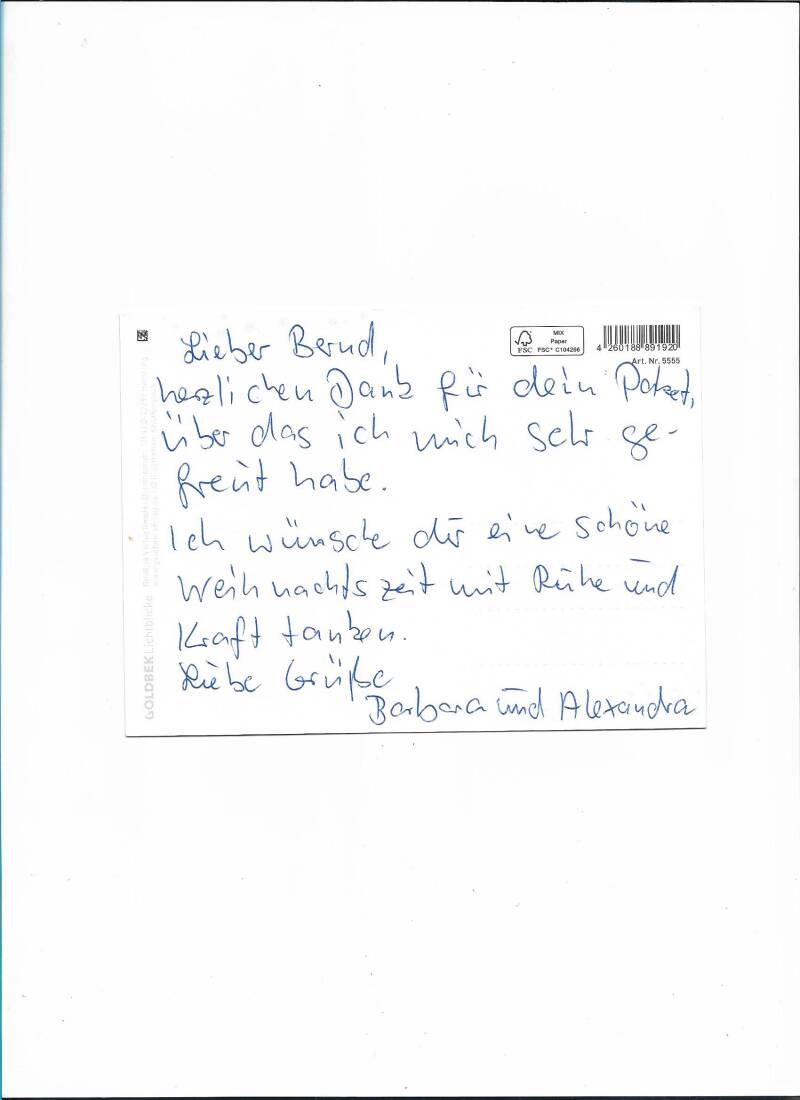 Lieber Bernd,
herzlichen Dank für dein Paket,
über das ich mich sehr ge-
freut habe.
Ich wünsche dir eine schöne
Weihnachtszeit mit Ruhe und
Kraft tanken.
Liebe Grüße
Barbara und Alexandra
MIX
Paper
FSC
FSC® C104266
4 260188 891920
Art. Nr. 5555
GOLDBEK Lichtblicke